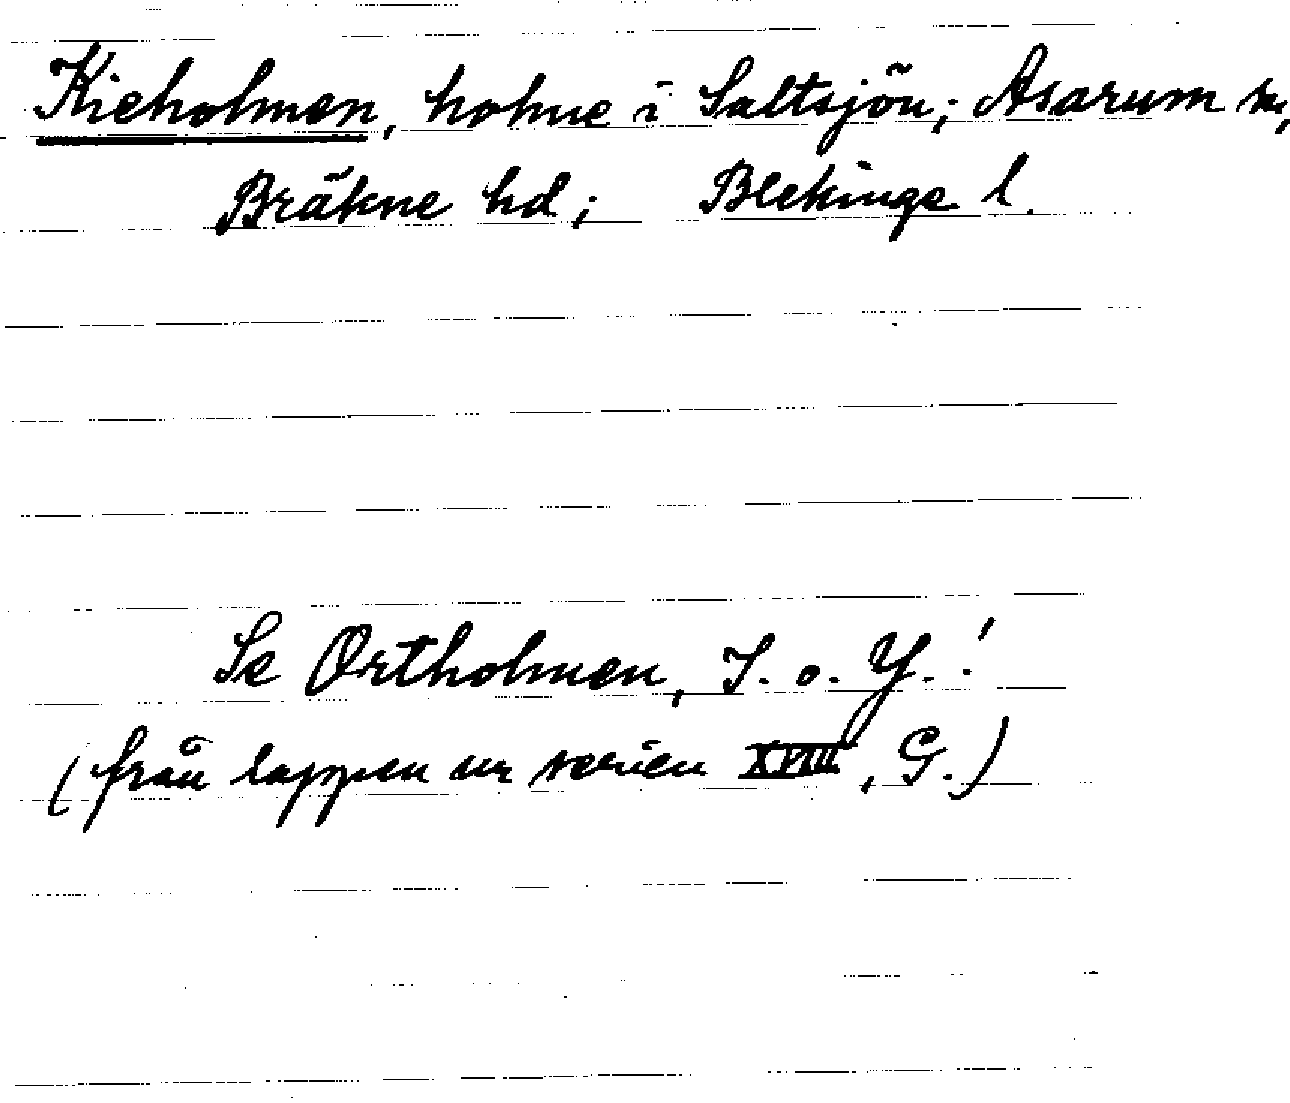 Kieholmen, holme i Saltsjön; Asarum sn,
Bräkne hd; Blekinge l.
Se Ortholmen, I. o. Y.!
(från lappen ur serien XVIII, G.)